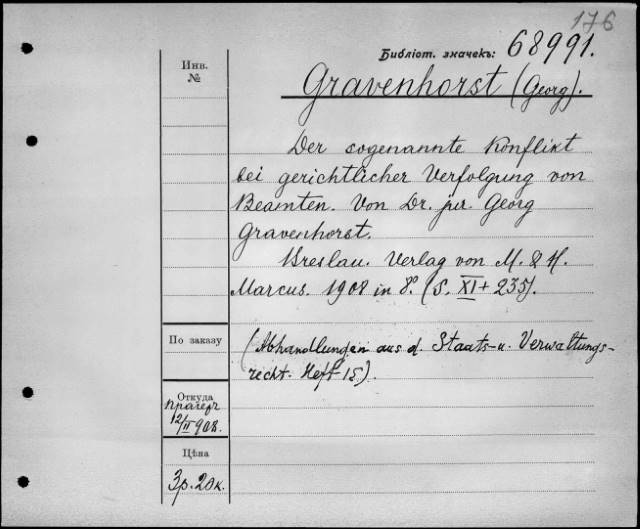 176
Библiот. значекъ: 68991.
Инв.
№
Gravenhorst (Georg).
Der sogenannte Konflikt
bei gerichtlicher Verfolgung von
Beamten. Von Dr. jur. Georg
Gravenhorst.
Breslau. Verlag von M. & H.
Marcus. 1908 in 8º. (S. XI + 235).
По заказу
(Abhandlungen aus d. Staats- u. Verwaltungs-
recht. Heft 15.)
Откуда
12/II 908.
Цѣна
3р. 20к.